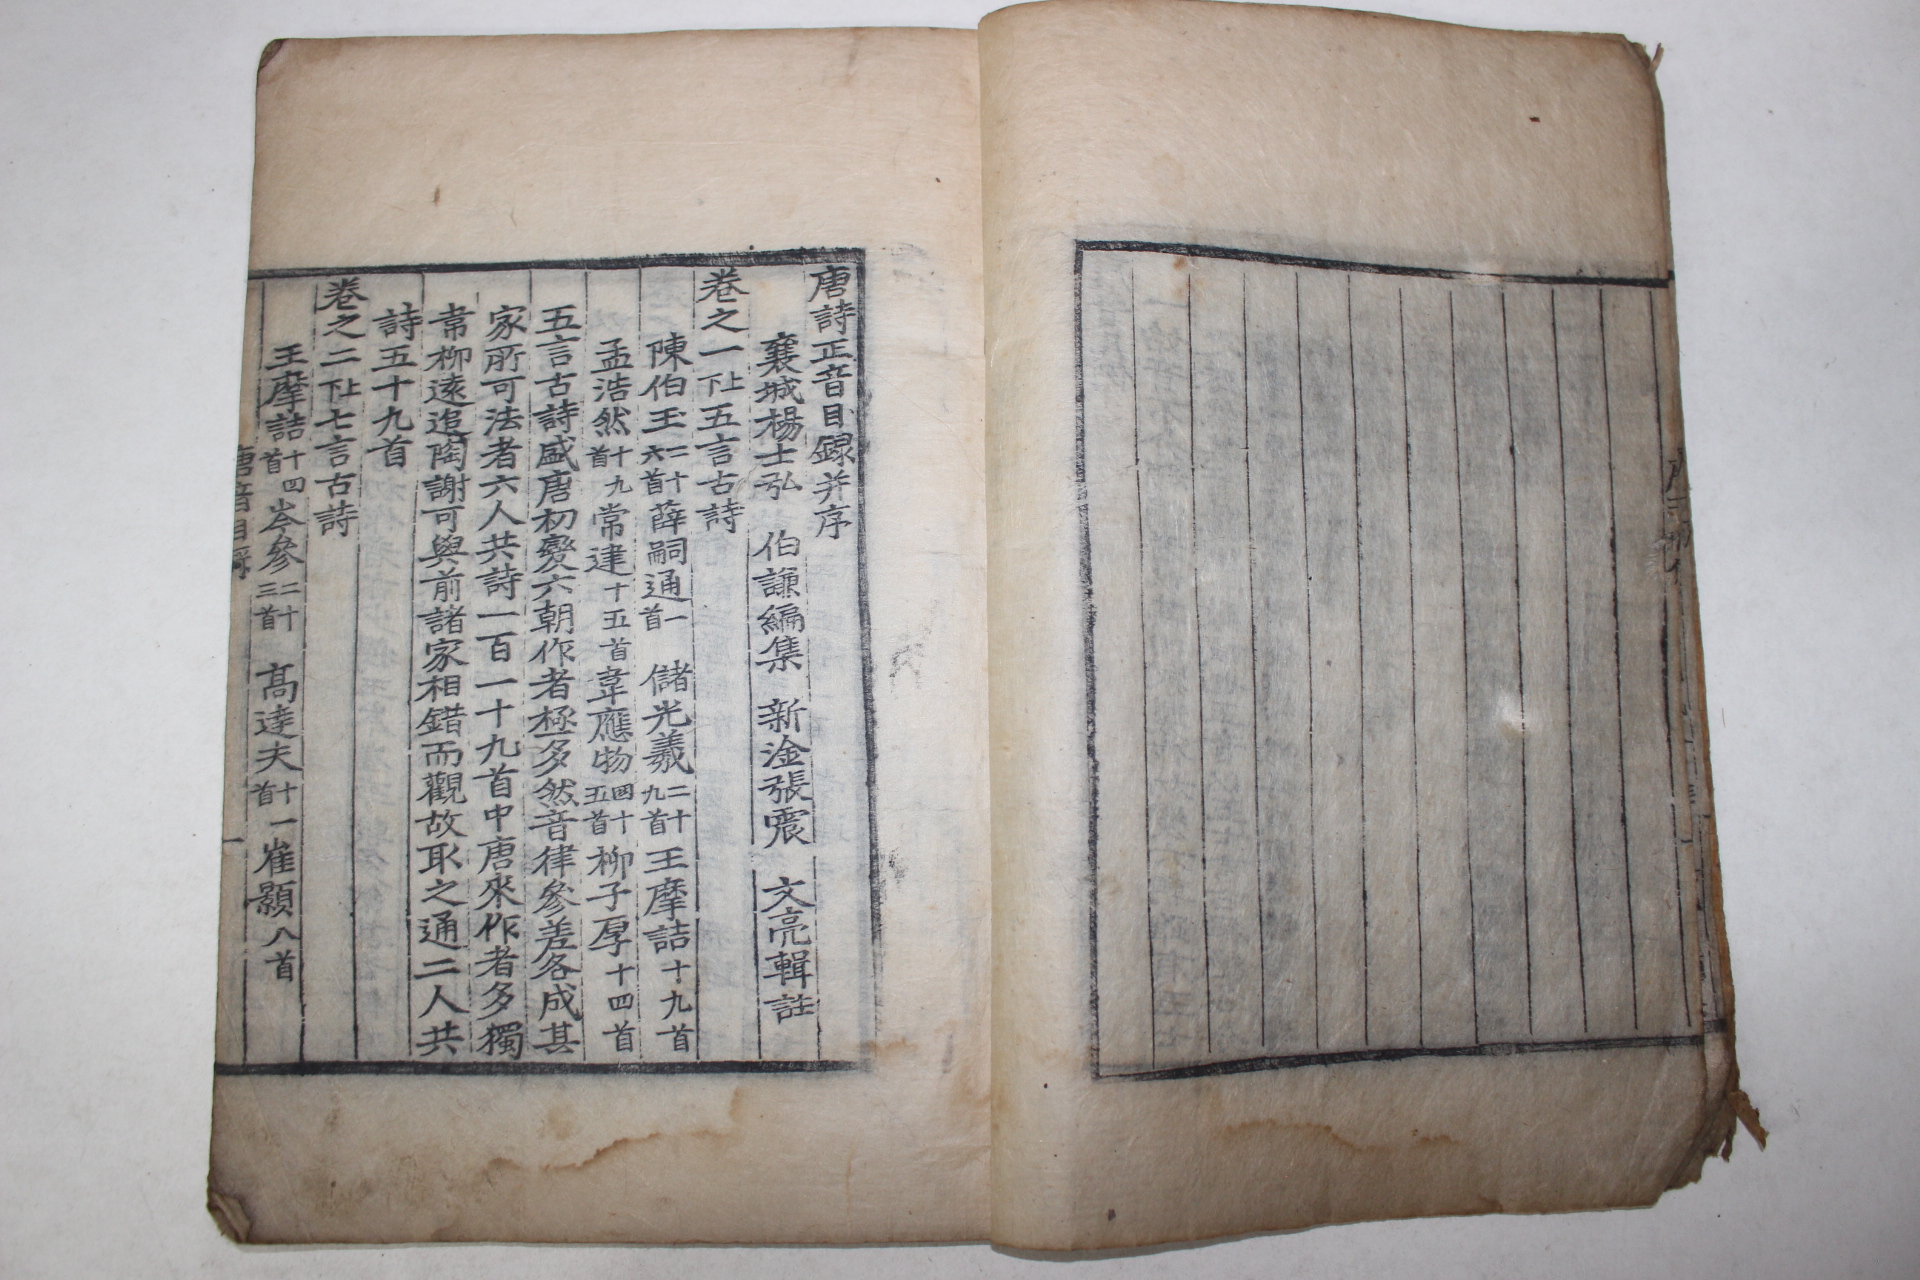 唐詩正音目録并序
襄城楊士弘 伯謙編集 新淦張震 文亮輯註
卷之一上下五言古詩
陳伯玉二十六首薛嗣通一首 儲光羲二十九首王摩詰十九首
孟浩然十九首常建十五首韋應物四十五首柳子厚十四首
五言古詩盛唐初變六朝作者極多然音律參差各成其
家所可法者六人共詩一百一十九首中唐來作者多獨
韋柳遠追陶謝可與前諸家相錯而觀故取之通二人共
詩五十九首
卷之二上下七言古詩
王摩詰十四首岑參二十三首 高達夫十一首崔顥八首
唐音目録 一